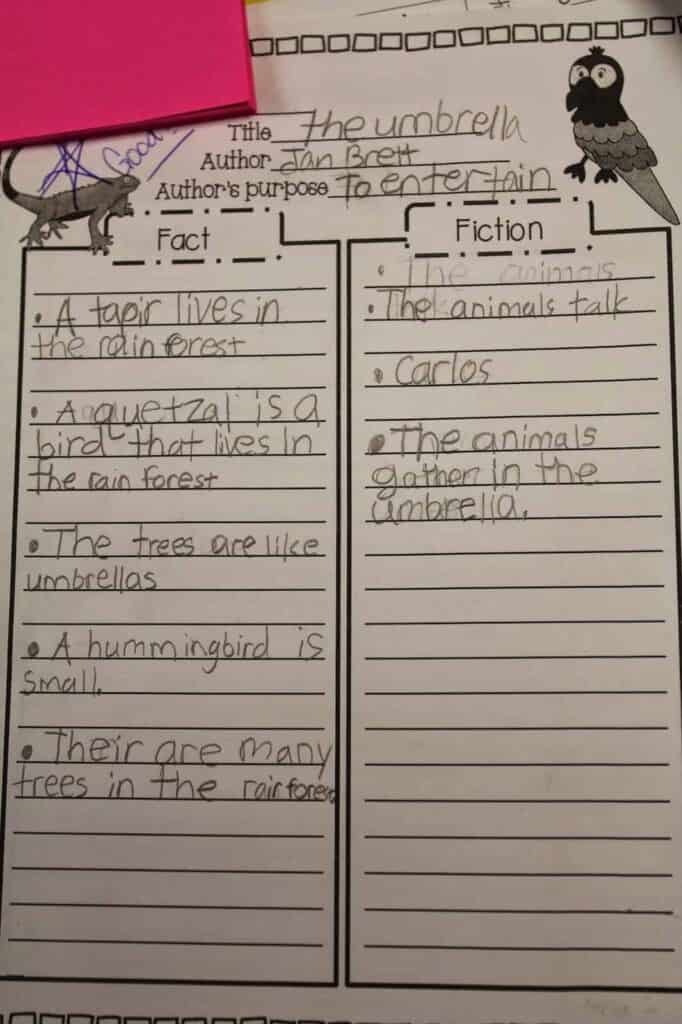 Good
Title the umbrella
Author Jan Brett
Author's purpose To entertain
Fact
• A tapir lives in
the rain forest
• A quetzal is a
bird that lives in
the rain forest
• The trees are like
umbrellas
• A hummingbird is
small.
• Their are many
trees in the rainforest
Fiction
• The animals
• The animals talk
• Carlos
• The animals
gather in the
umbrella.